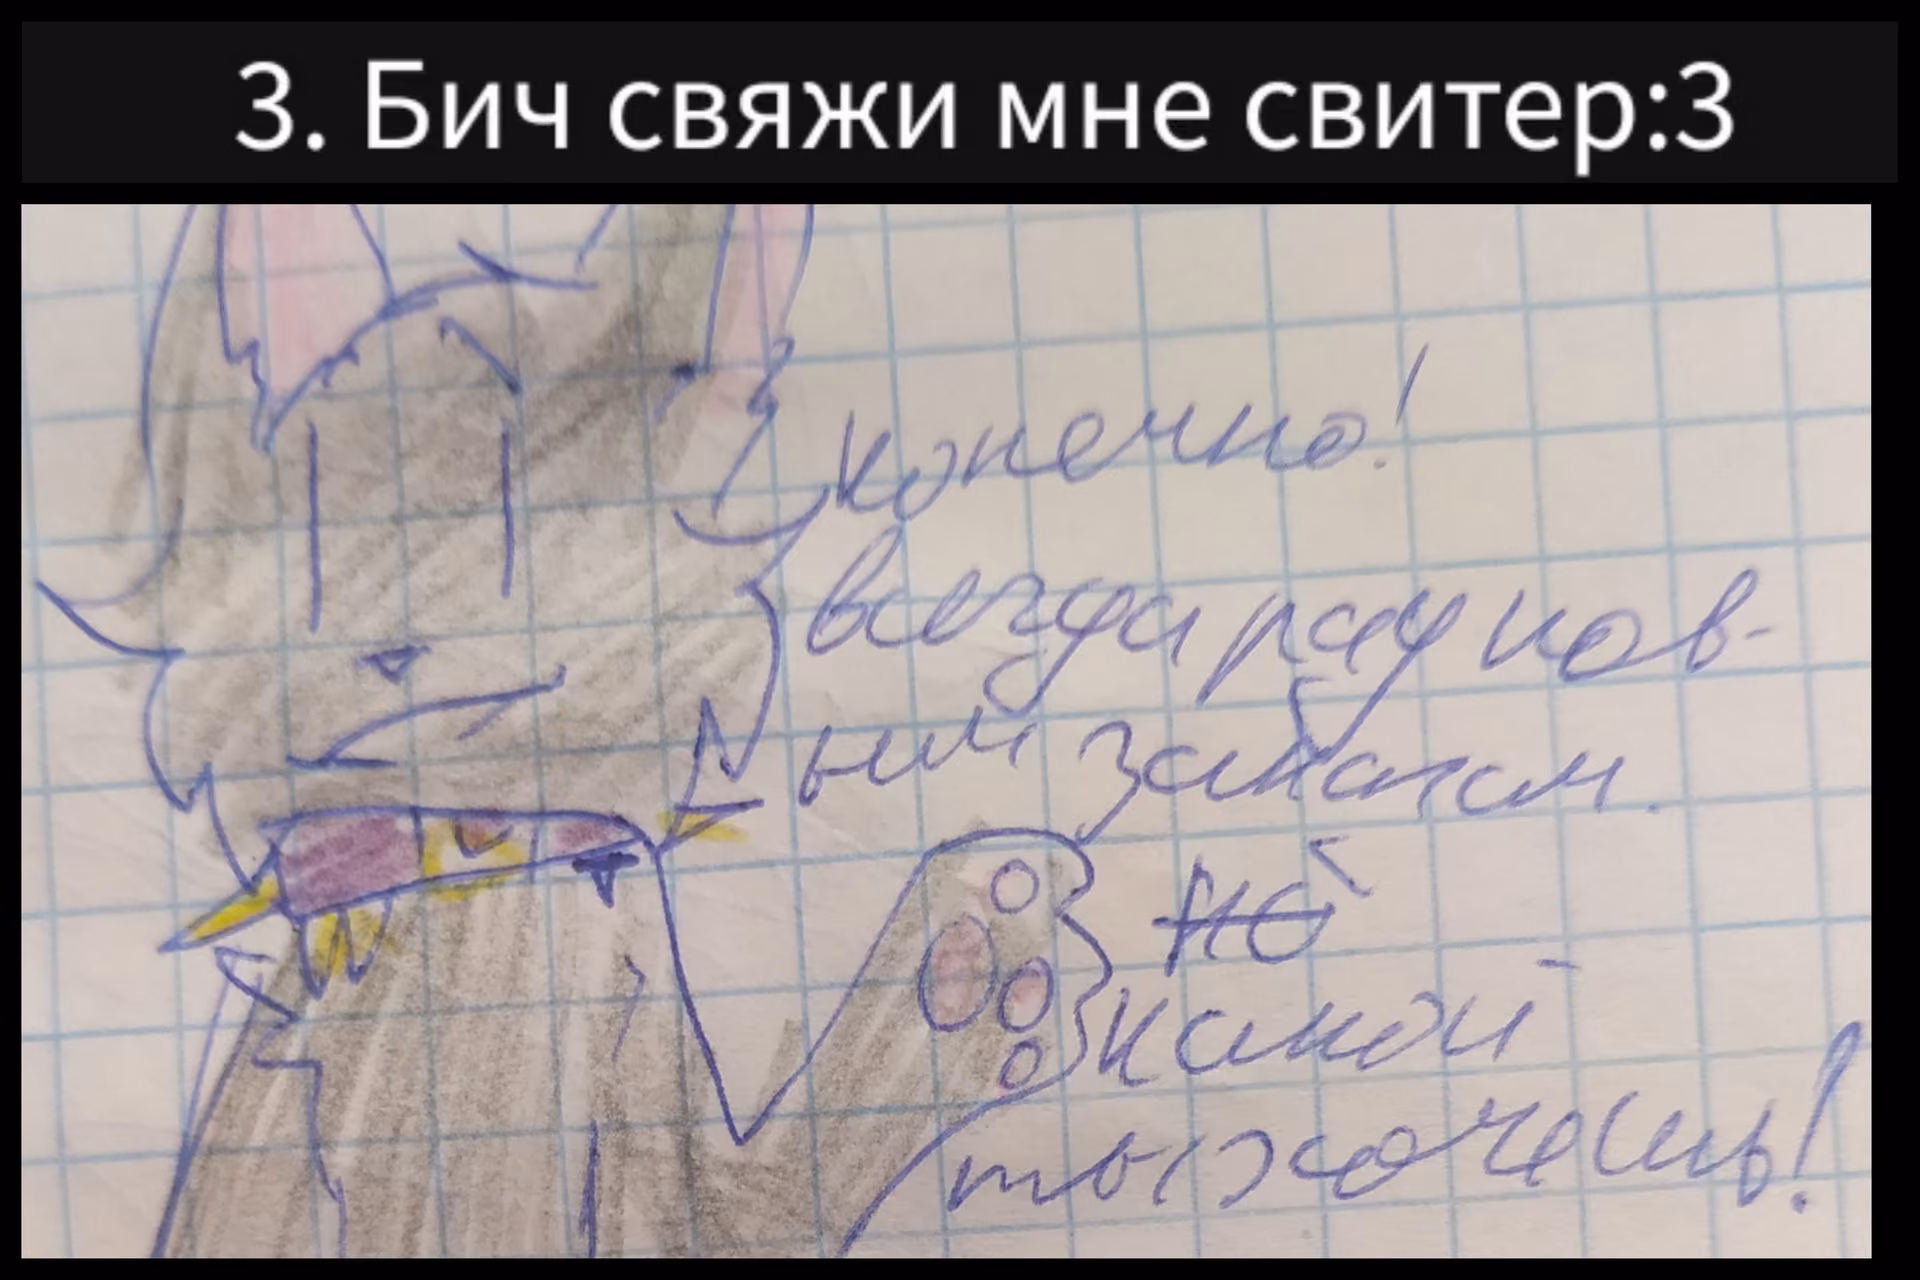 3. Бич свяжи мне свитер:3
конечно!
всегда рад нов-
ым заказам.
какой
ты хочешь!